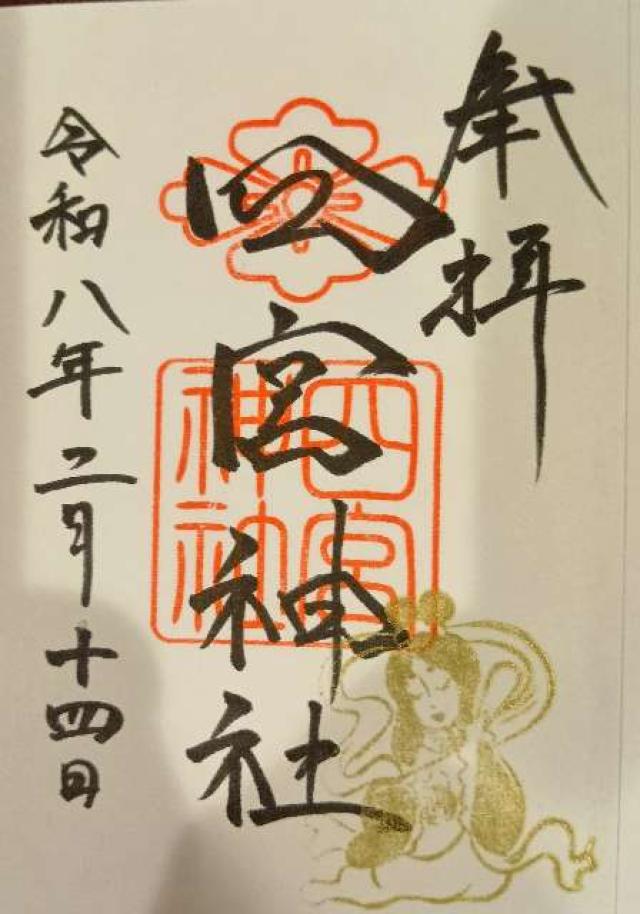 奉拝
四宮神社
四宮
神社
令和八年二月十四日